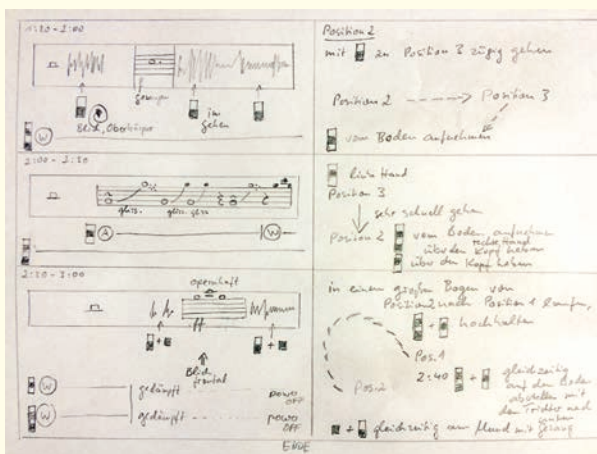 1:30-2:00
gesungen
Blick, Oberkörper
im Gehen
W
Position 2
mit zu Position 3 zügig gehen
Position 2 ----> Position 3
vom Boden aufnehmen
2:00-2:30
gliss.
gliss. gliss
A
W
linke Hand
Position 3
sehr schnell gehen
Position 2
vom Boden aufnehmen
rechte Hand
über den Kopf heben
über den Kopf heben
2:30-3:00
opernhaft
ff
+
+
Blick
frontal
W
gedämpft
power
OFF
W
gedämpft
power
OFF
in einem großen Bogen von
Position 2 nach Position 1 laufen,
+ hochhalten
Pos. 1
Pos. 2
2:40 + gleichzeitig
auf den Boden
abstellen mit
den Trichter nach
unten
+ gleichzeitig am Mund mit Gesang
ENDE